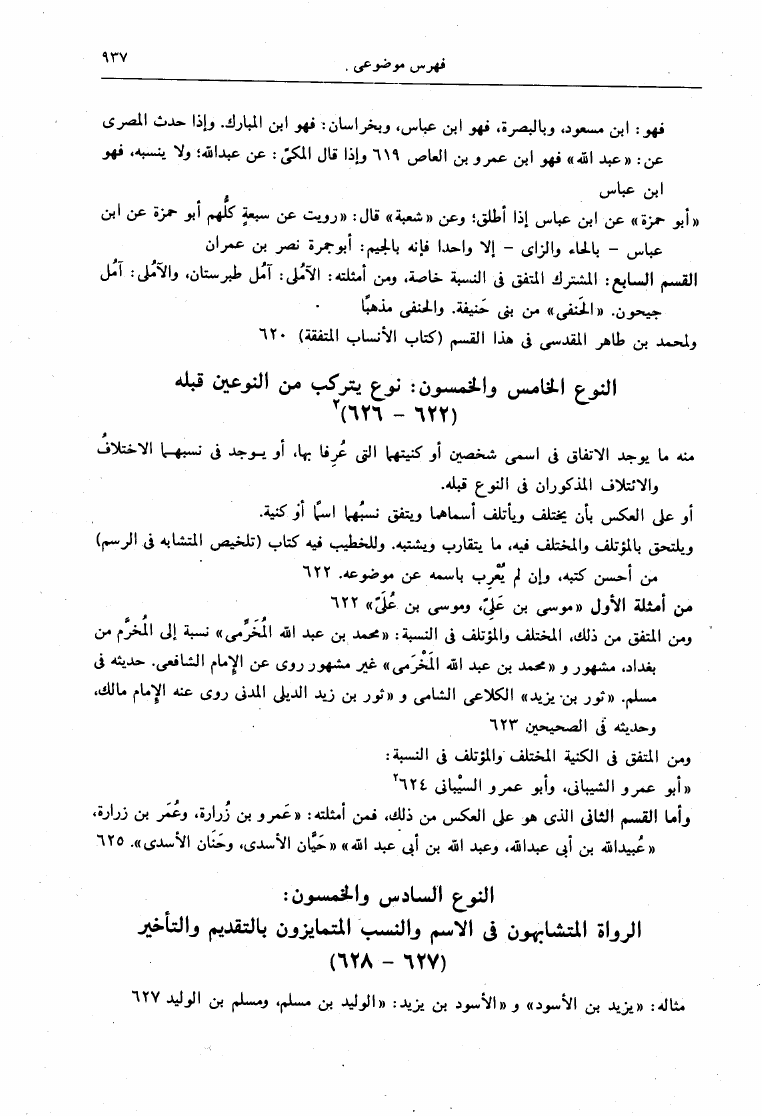 فهرس موضوعى .
٩٣٧
فهو : ابن مسعود، وبالبصرة، فهو ابن عباس، وبخراسان: فهو ابن المبارك. وإذا حدث المصرى
عن: «عبد الله» فهو ابن عمرو بن العاص ٦١٩ وإذا قال المكىّ: عن عبدالله؛ ولا ينسبه، فهو
ابن عباس
«أبو حمزة» عن ابن عباس إذا أطلق؛ وعن «شعبة» قال: «رويت عن سبعةٍ كلُّهم أبو حمزة عن ابن
عباس – بالحاء والزاى – إلا واحدا فإنه بالجيم: أبوجمرة نصر بن عمران
القسم السابع: المشترك المتفق فى النسبة خاصة، ومن أمثلته: الآملى: آمُل طبرستان، والآمُلى: آمُل
جيحون. «الحَنفى» من بنى حَنيفة. والحنفى مذهبًا
ولمحمد بن طاهر المقدسى فى هذا القسم (كتاب الأنساب المتفقة) ٦٢٠
النوع الخامس والخمسون: نوع يتركب من النوعين قبله
(٦٢٢ – ٦٢٦)٢
منه ما يوجد الاتفاق فى اسمى شخصين أو كنيتهما التى عُرِفا بها، أو يوجد فى نسبهما الاختلافُ
والائتلاف المذكوران فى النوع قبله.
أو على العكس بأن يختلف ويأتلف أسماهما ويتفق نسبُهما اسمًا أو كنية.
ويلتحق بالمؤتلف والمختلف فيه، ما يتقارب ويشتبه. وللخطيب فيه كتاب (تلخيص المتشابه فى الرسم)
من أحسن كتبه، وإن لم يُعْرِب باسمه عن موضوعه. ٦٢٢
من أمثلة الأول «موسى بن عَلِىّ، وموسى بن عُلَىّ» ٦٢٢
ومن المتفق من ذلك، المختلف والمؤتلف فى النسبة: «محمد بن عبد الله المُخَرِّمى» نسبة إلى المُخرَّم من
بغداد، مشهور و «محمد بن عبد الله المَخْرَمى» غير مشهور روى عن الإمام الشافعى. حديثه فى
مسلم. «ثور بن يزيد» الكلاعى الشامى و «ثور بن زيد الديلى المدنى روى عنه الإمام مالك،
وحديثه فى الصحيحين ٦٢٣
ومن المتفق فى الكنية المختلف والمؤتلف فى النسبة:
«أبو عمرو الشيبانى، وأبو عمرو السيْبانى ٦٢٤٢
وأما القسم الثانى الذى هو على العكس من ذلك، فمن أمثلته: «عَمرو بن زُرارة، وعُمَر بن زرارة،
«عُبيدالله بن أبى عبدالله، وعبد الله بن أبى عبد الله» «حَيَّان الأسدى، وحَنَان الأسدى». ٦٢٥
النوع السادس والخمسون:
الرواة المتشابهون فى الاسم والنسب المتمايزون بالتقديم والتأخير
(٦٢٧ – ٦٢٨)
مثاله: «يزيد بن الأسود» و «الأسود بن يزيد: «الوليد بن مسلم، ومسلم بن الوليد ٦٢٧